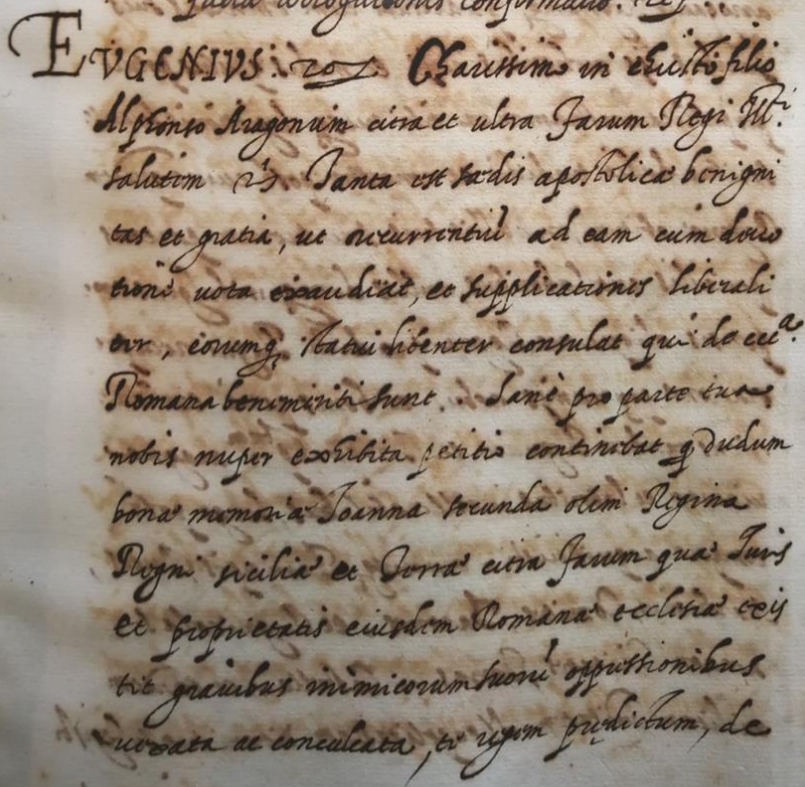 facta arrogationis confirmatio.
EVGENIVS. Charissimo in christo filio
Alphonso Aragonum citra et ultra Farum Regi Ill.ri
salutem Tanta est sædis apostolicæ benigni
tas et gratia, ut occurrentiũ ad eam cum deuo
tionẽ uota exaudiat, et supplicationes liberali
ter, eorumq; statui libenter consulat qui de ecc.a
Romana benemeriti sunt. Sanè pro parte tua
nobis nuper exhibita petitio continebat q dudum
bonæ memoriæ Ioanna secunda olim Regina
Regni siciliæ et Terræ citra Farum quæ Iuris
et proprietatis eiusdem Romanæ ecclesiæ exis
tit grauibus inimicorum suorũ oppressionibus
uexata ac conculcata, te regem prędictum, de